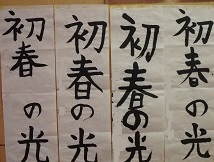 初春の光
初春の光
初春の光
初春の光